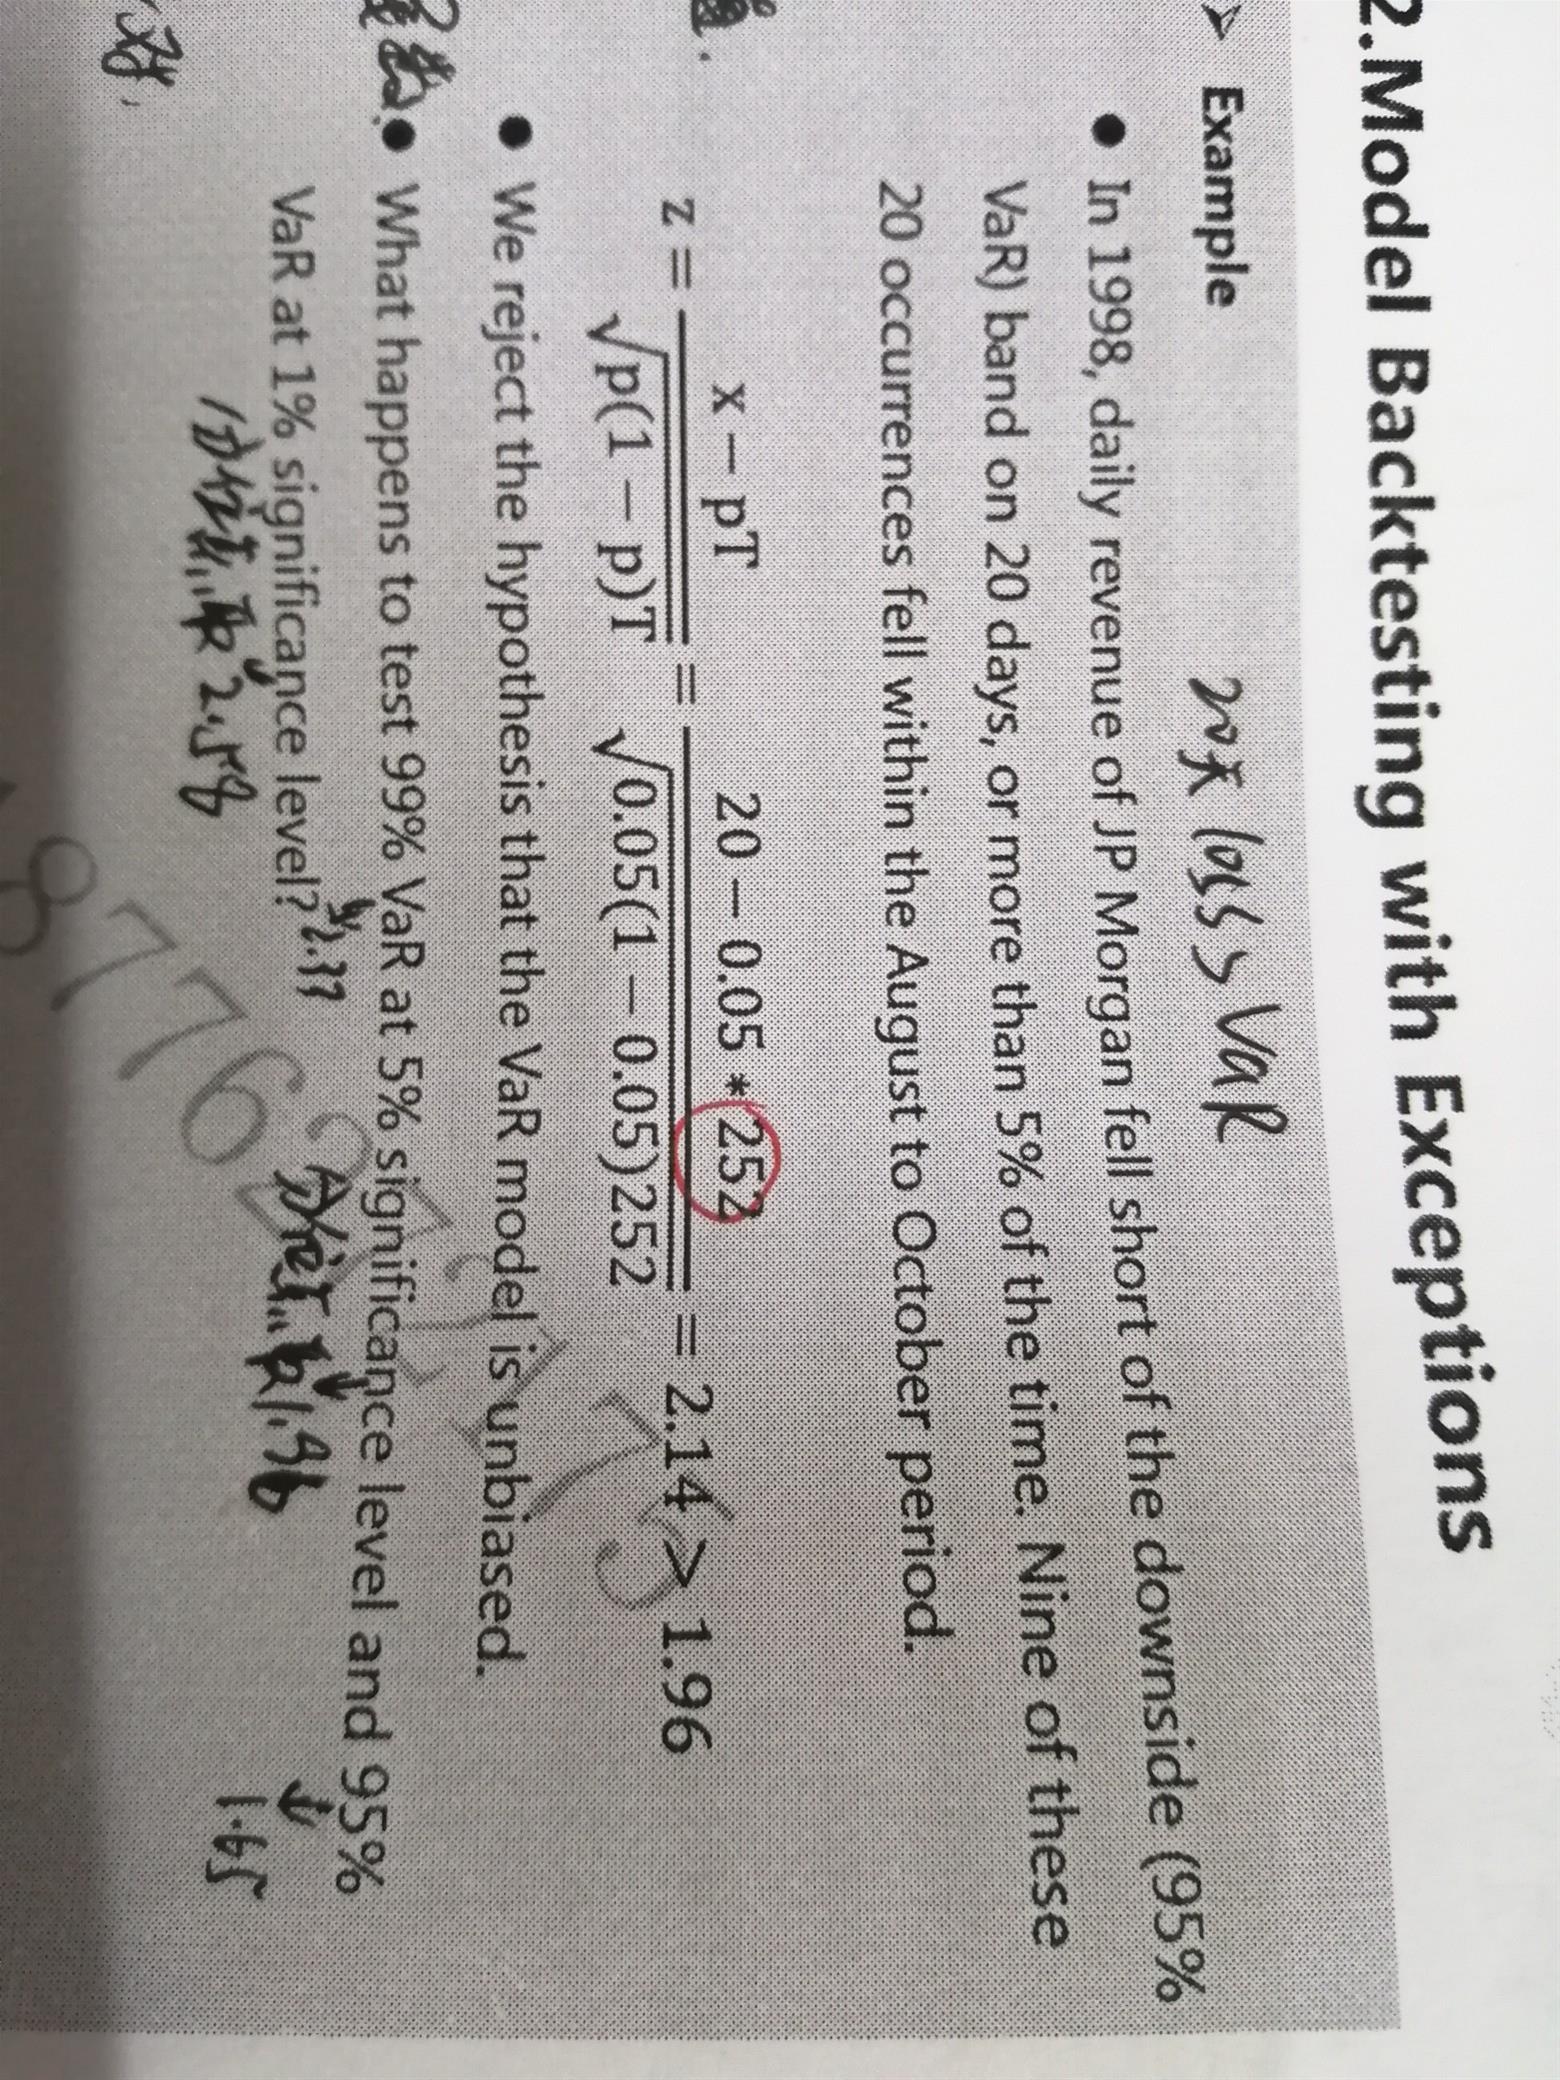 2.Model Backtesting with Exceptions
➢ Example
max loss > VaR
● In 1998, daily revenue of JP Morgan fell short of the downside (95%
VaR) band on 20 days, or more than 5% of the time. Nine of these
20 occurrences fell within the August to October period.
z = x − pT / √p(1 − p)T = 20 − 0.05 * 252 / √0.05(1 − 0.05)252 = 2.14 > 1.96
● We reject the hypothesis that the VaR model is unbiased.
● What happens to test 99% VaR at 5% significance level and 95%
2.33
1.96
1.65
VaR at 1% significance level?
2.58